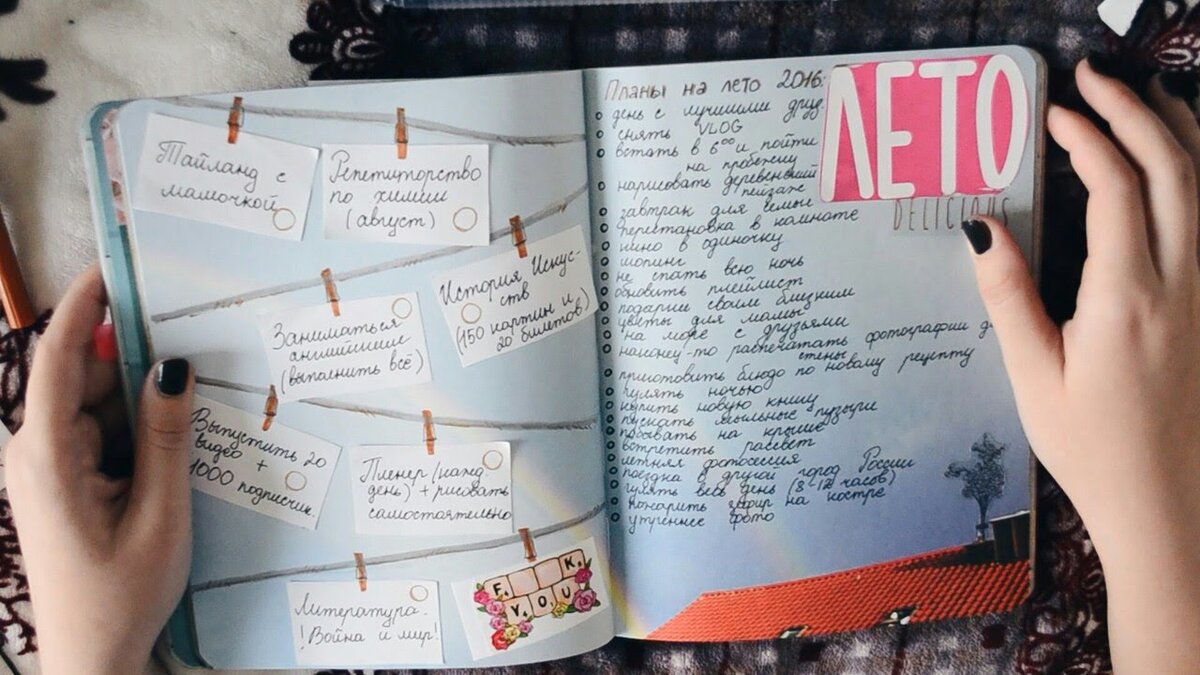 Тайланд с
мамочкой
Репетиторство
по химии
(август)
История Искус-
ств
(150 картин и
20 билетов!)
Заниматься
английским
(выполнить всё)
Выпустить 20
видео +
1000 подписчик.
Пленер (кажд.
день) + рисовать
самостоятельно
Литература.
! Война и мир!
F K
YOU
Планы на лето 2016:
ЛЕТО
DELICIOUS
день с лучшими друз.
снять VLOG
встать в 6⁰⁰ и пойти
на пробежку
нарисовать деревенский
пейзаж
завтрак для семьи
перестановка в комнате
кино в одиночку
шопинг
не спать всю ночь
обновить плейлист
подарить своим близким
цветы для мамы
на море с друзьями
наконец-то распечатать фотографии д
стены
приготовить блюдо по новому рецепту
гулять ночью
купить новую книгу
пускать мыльные пузыри
побывать на крыше
встретить рассвет
летняя фотосессия
поездка в другой город России
гулять весь день (8-12 часов)
пожарить зефир на костре
утреннее фото